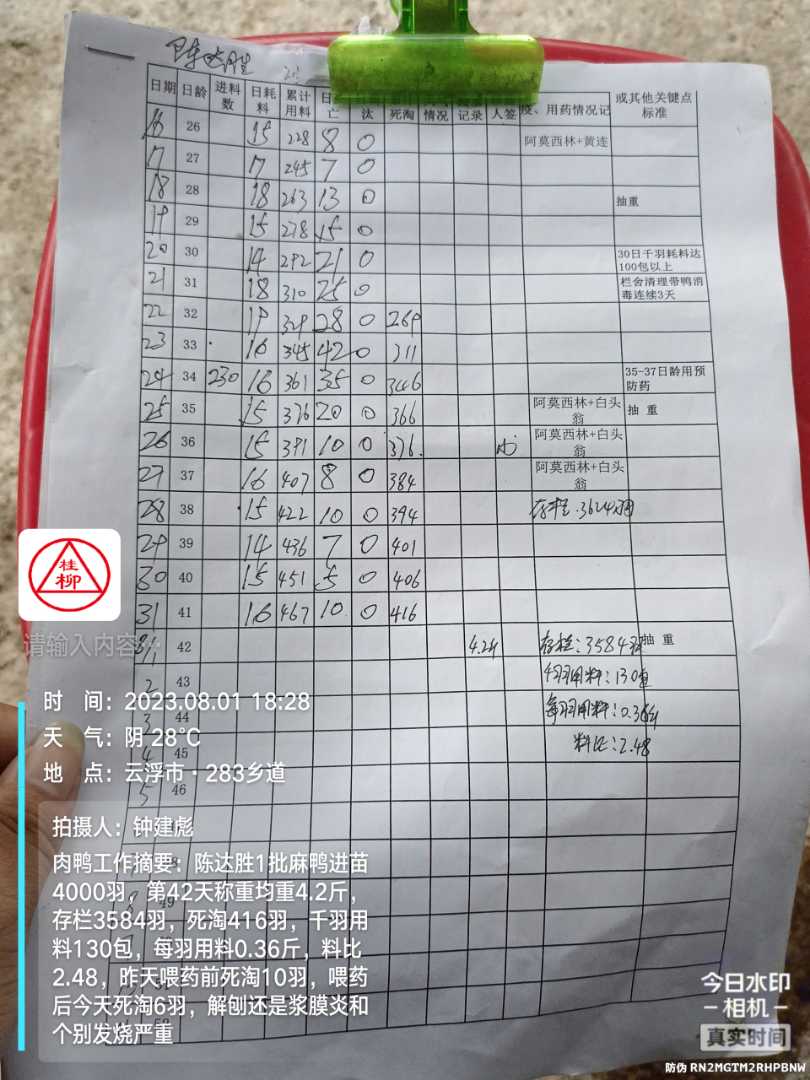 陈达胜
日期 日龄 进料数 日耗料 累计用料 亡 汰 死淘 情况 记录 人签 疫、用药情况记 或其他关键点标准
16 26 15 228 8 0 阿莫西林+黄连
17 27 17 245 7 0
18 28 18 263 13 0 抽重
19 29 15 278 15 0
20 30 14 292 21 0 30日千羽耗料达100包以上
21 31 18 310 25 0 栏舍清理带鸭消毒连续3天
22 32 19 329 28 0 269
23 33 16 345 42 0 311
24 34 230 16 361 35 0 346 35-37日龄用预防药
25 35 15 376 20 0 366 阿莫西林+白头翁 抽 重
26 36 15 391 10 0 376. 阿莫西林+白头翁
27 37 16 407 8 0 384 阿莫西林+白头翁
28 38 15 422 10 0 394
29 39 14 436 7 0 401
30 40 15 451 5 0 406
31 41 16 467 10 0 416
42 4.2斤 存栏:3584羽 抽 重
2 43 千羽用料:130包
3 44 每羽用料:0.36斤
4 45 料比:2.48
5 46
49
桂柳
请输入内容
时 间:2023.08.01 18:28
天 气:阴 28℃
地 点:云浮市·283乡道
拍摄人:钟建彪
肉鸭工作摘要:陈达胜1批麻鸭进苗
4000羽,第42天称重均重4.2斤,
存栏3584羽,死淘416羽,千羽用
料130包,每羽用料0.36斤,料比
2.48,昨天喂药前死淘10羽,喂药
后今天死淘6羽,解刨还是浆膜炎和
个别发烧严重
今日水印
-相机-
真实时间
防伪 RN2MGTM2RHPBNW